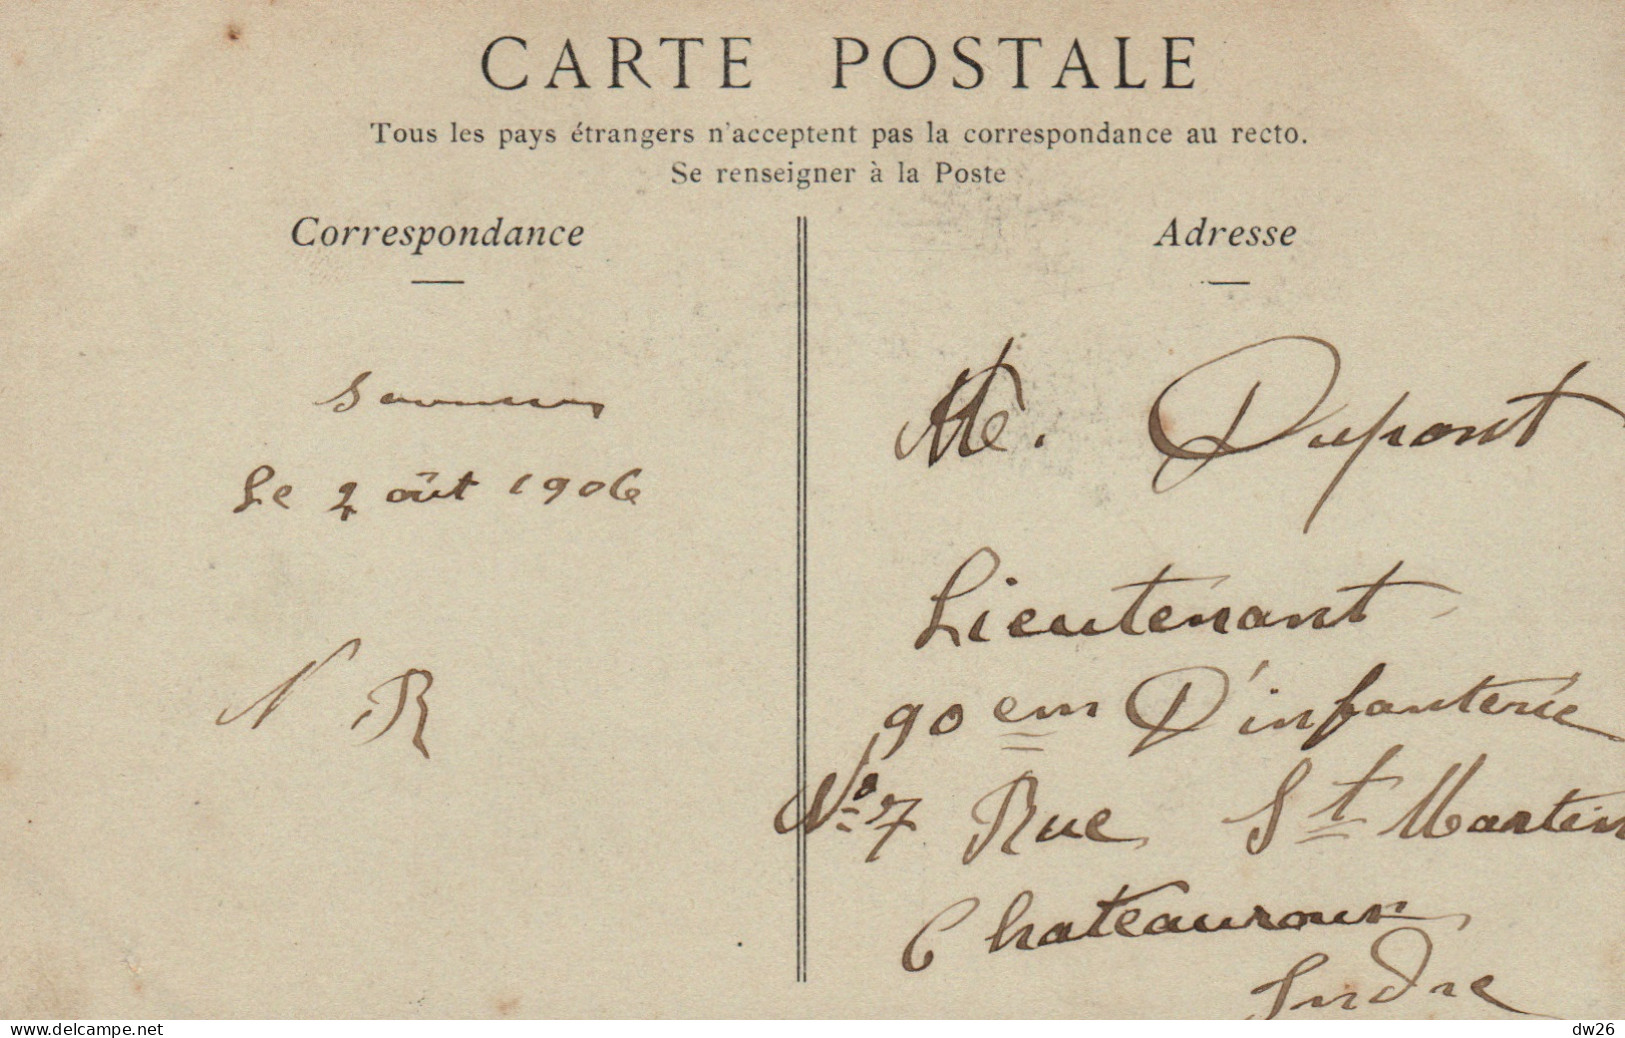 CARTE POSTALE
Tous les pays étrangers n'acceptent pas la correspondance au recto.
Se renseigner à la Poste
Correspondance
Le 2 oût 1906
N R
Adresse
Dupont
Lieutenant
90 em D'infanterie
No 7 Rue St Martin
Chateauroux
Indre
www.delcampe.net
dw26